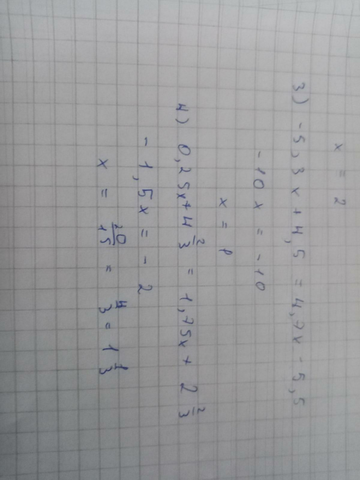 x = 2
3) -5,3x + 4,5 = 4,7x - 5,5
-10x = -10
x = 1
4) 0,25x + 4 2/3 = 1,75x + 2 2/3
-1,5x = -2
x = 20/15 = 4/3 = 1 1/3